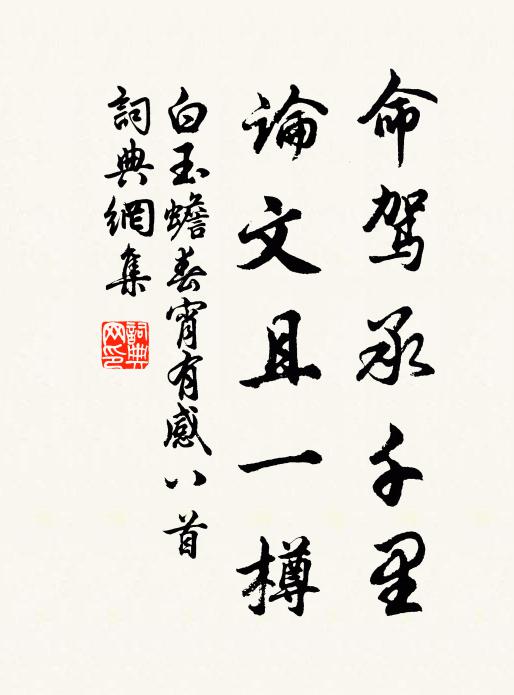 命駕承千里
論文且一樽
白玉蟾春宵有感八首
詞典網集
詞典網印